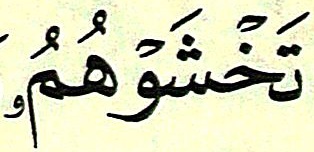 تَخۡشَوۡهُمُۥ